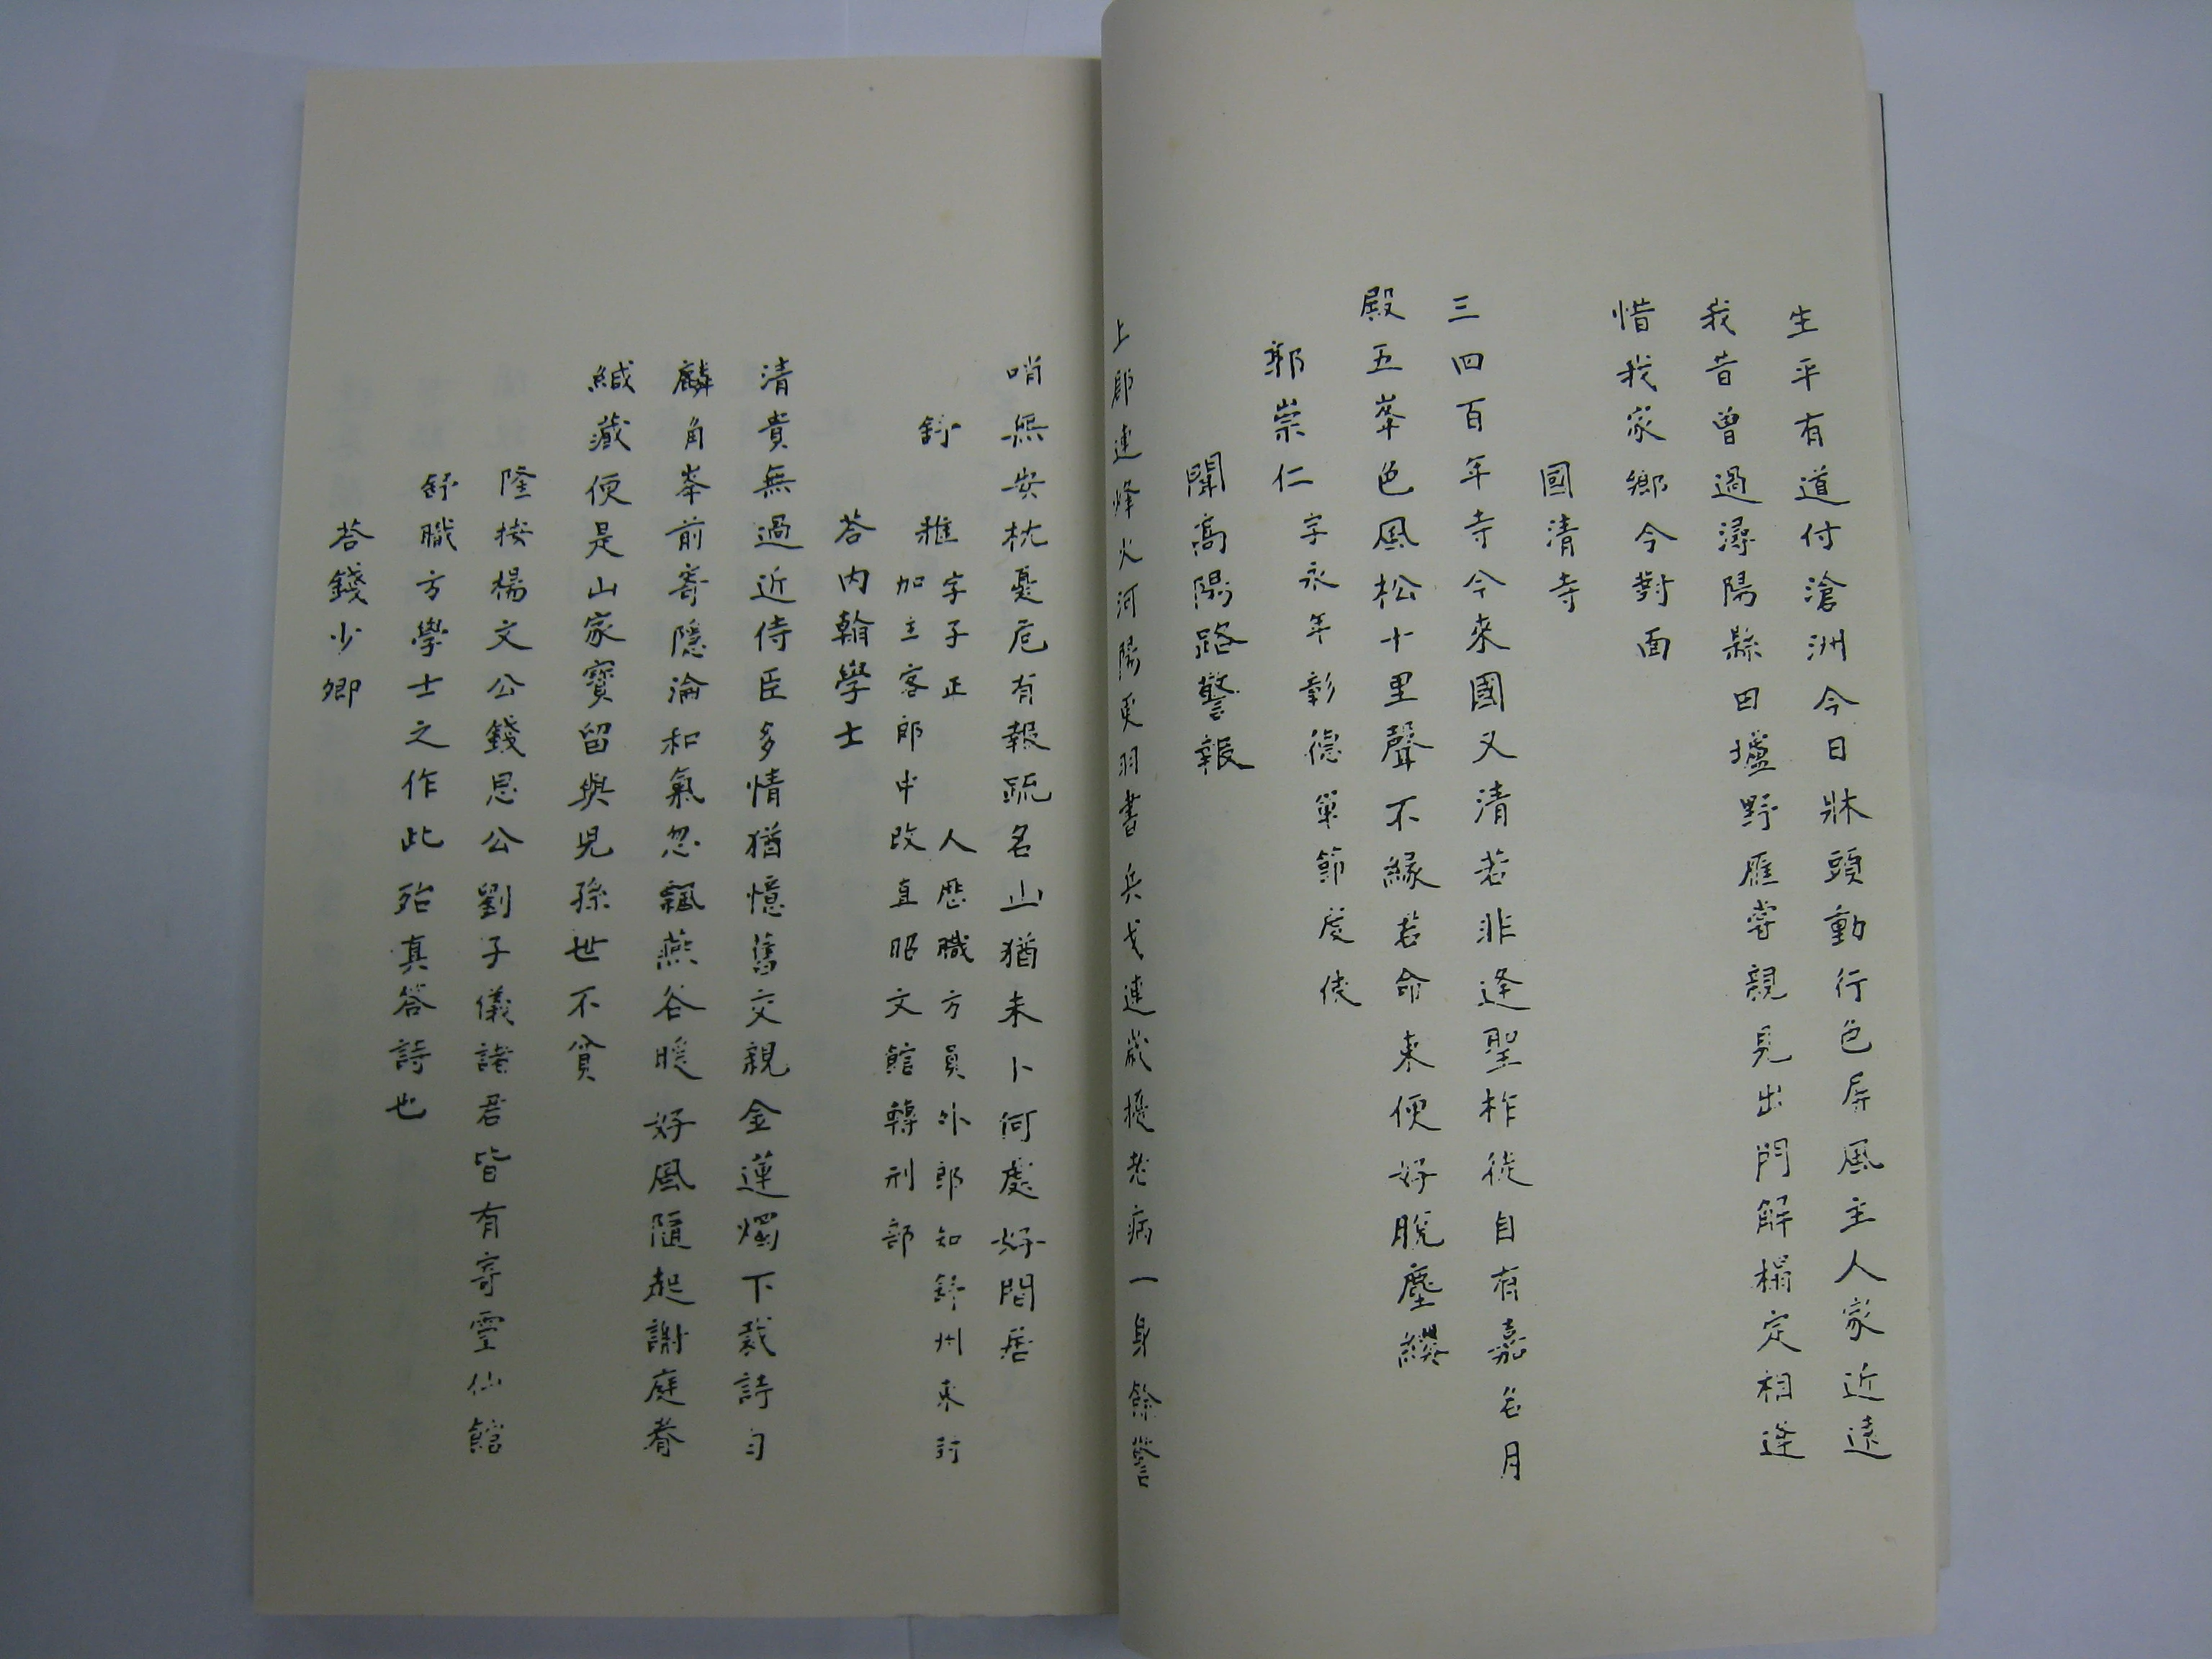 生平有道付滄洲今日牀頭動行色孱風主人家近遠
我昔曾過潯陽縣田壚野雁嘗親見出門解榻定相逢
惜我家鄉今對面
國清寺
三四百年寺今來國又清若非逢聖柞徒自有嘉名月
殿五峯色風松十里聲不緣若命來便好脫塵纓
郭崇仁 字永年彰德軍節度使
聞高陽路警報
上郡連烽火河陽更羽書兵戈連歲擾老病一身餘警
哨無安枕憂危有報疏名山猶未卜何處好閒居
舒雅 字子正 人歷職方員外郎知舒州東封
加主客郎中改直昭文館轉刑部
荅內翰學士
清貴無過近侍臣多情猶憶舊交親金蓮燭下裁詩句
麟角峯前寄隱淪和氣忽飄燕谷暖好風隨起謝庭春
緘藏便是山家寶留與兒孫世不貧
隆按楊文公錢思公劉子儀諸君皆有寄靈仙館
舒職方學士之作此殆真答詩也
荅錢少卿